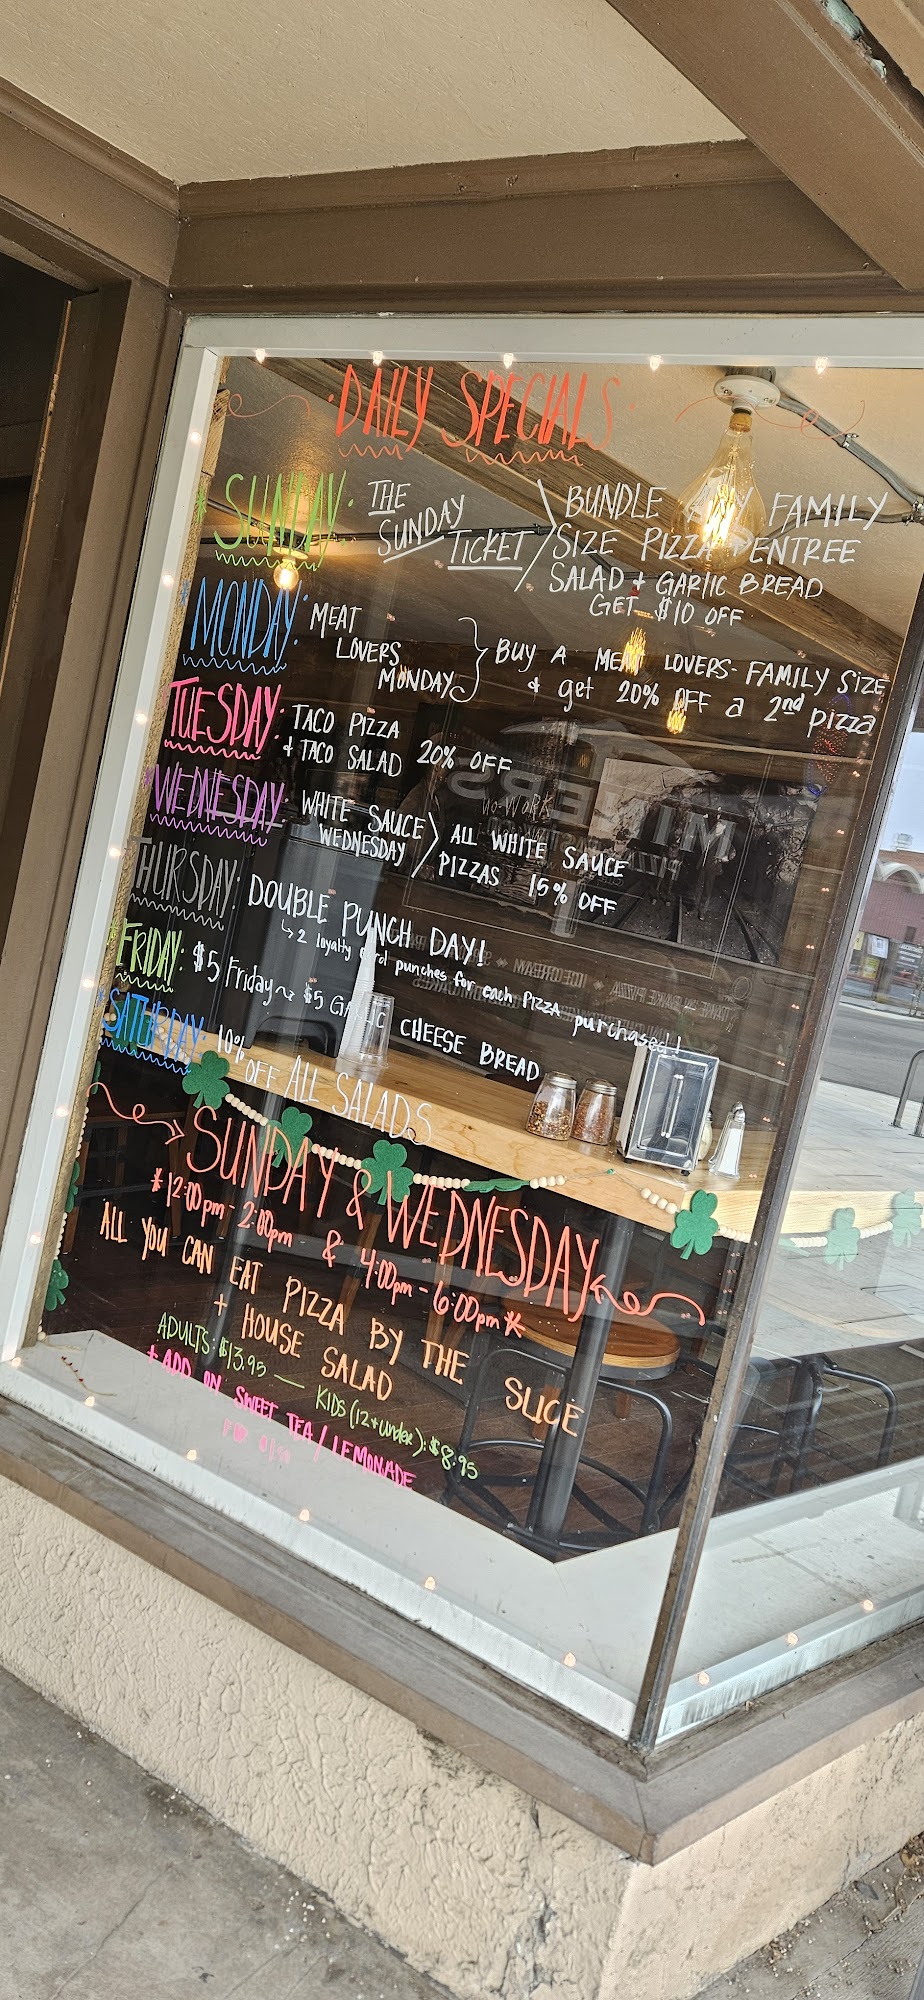 DAILY SPECIALS
SUNDAY: THE SUNDAY TICKET
BUNDLE FAMILY
SIZE PIZZA ENTREE
SALAD + GARLIC BREAD
GET $10 OFF
MONDAY: MEAT LOVERS MONDAY
BUY A MEAT LOVERS- FAMILY SIZE
& get 20% OFF a 2nd pizza
TUESDAY: TACO PIZZA
& TACO SALAD 20% OFF
WEDNESDAY: WHITE SAUCE WEDNESDAY
ALL WHITE SAUCE
PIZZAS 15% OFF
THURSDAY: DOUBLE PUNCH DAY!
2 loyalty card punches for each Pizza purchased!!
FRIDAY: $5 Friday $5 GARLIC CHEESE BREAD
SATURDAY: 10% OFF ALL SALADS
SUNDAY & WEDNESDAY
*12:00pm - 2:00pm & 4:00pm - 6:00pm*
ALL YOU CAN EAT PIZZA BY THE SLICE
+ HOUSE SALAD
ADULTS: $13.95 — KIDS (12 + under): $8.95
+ ADD ON SWEET TEA / LEMONADE